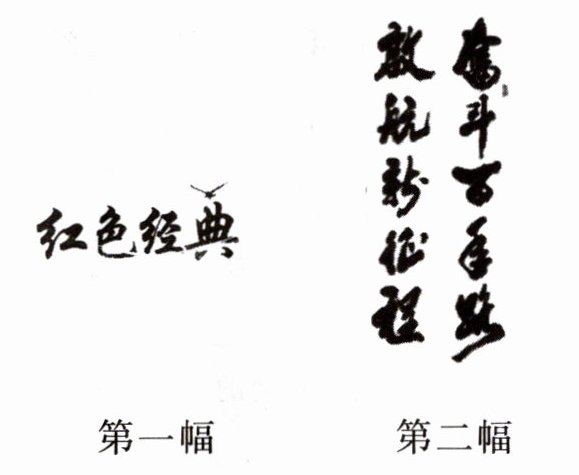 红色经典
奋斗百年路
启航新征程
第一幅
第二幅